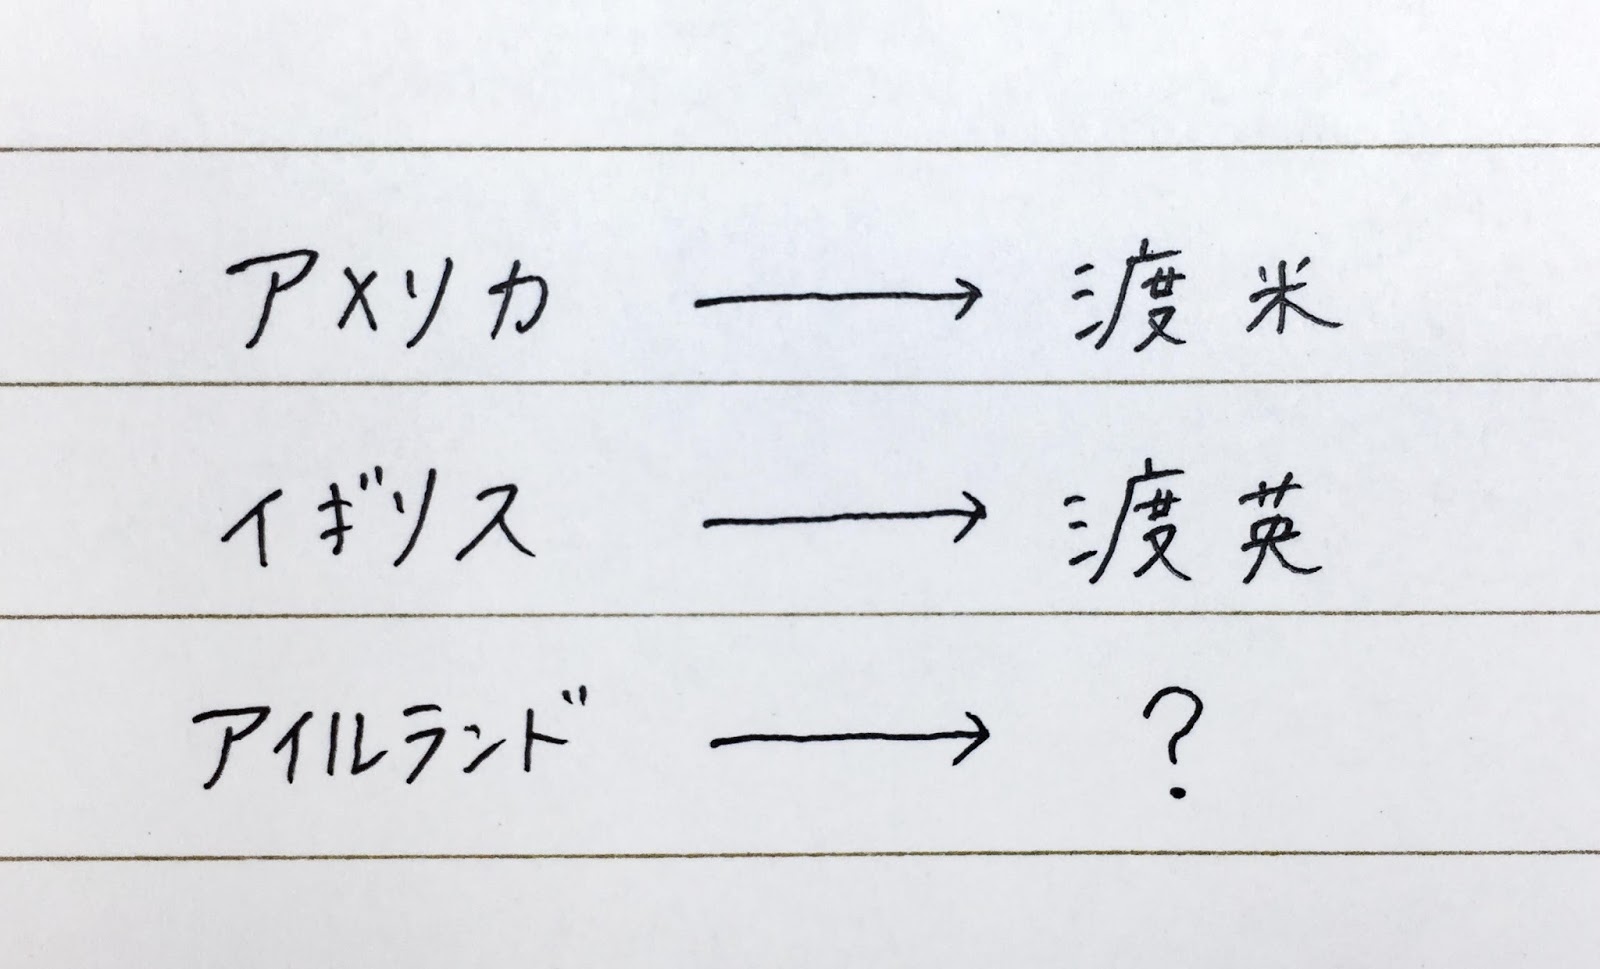 アメリカ → 渡米
イギリス → 渡英
アイルランド → ?